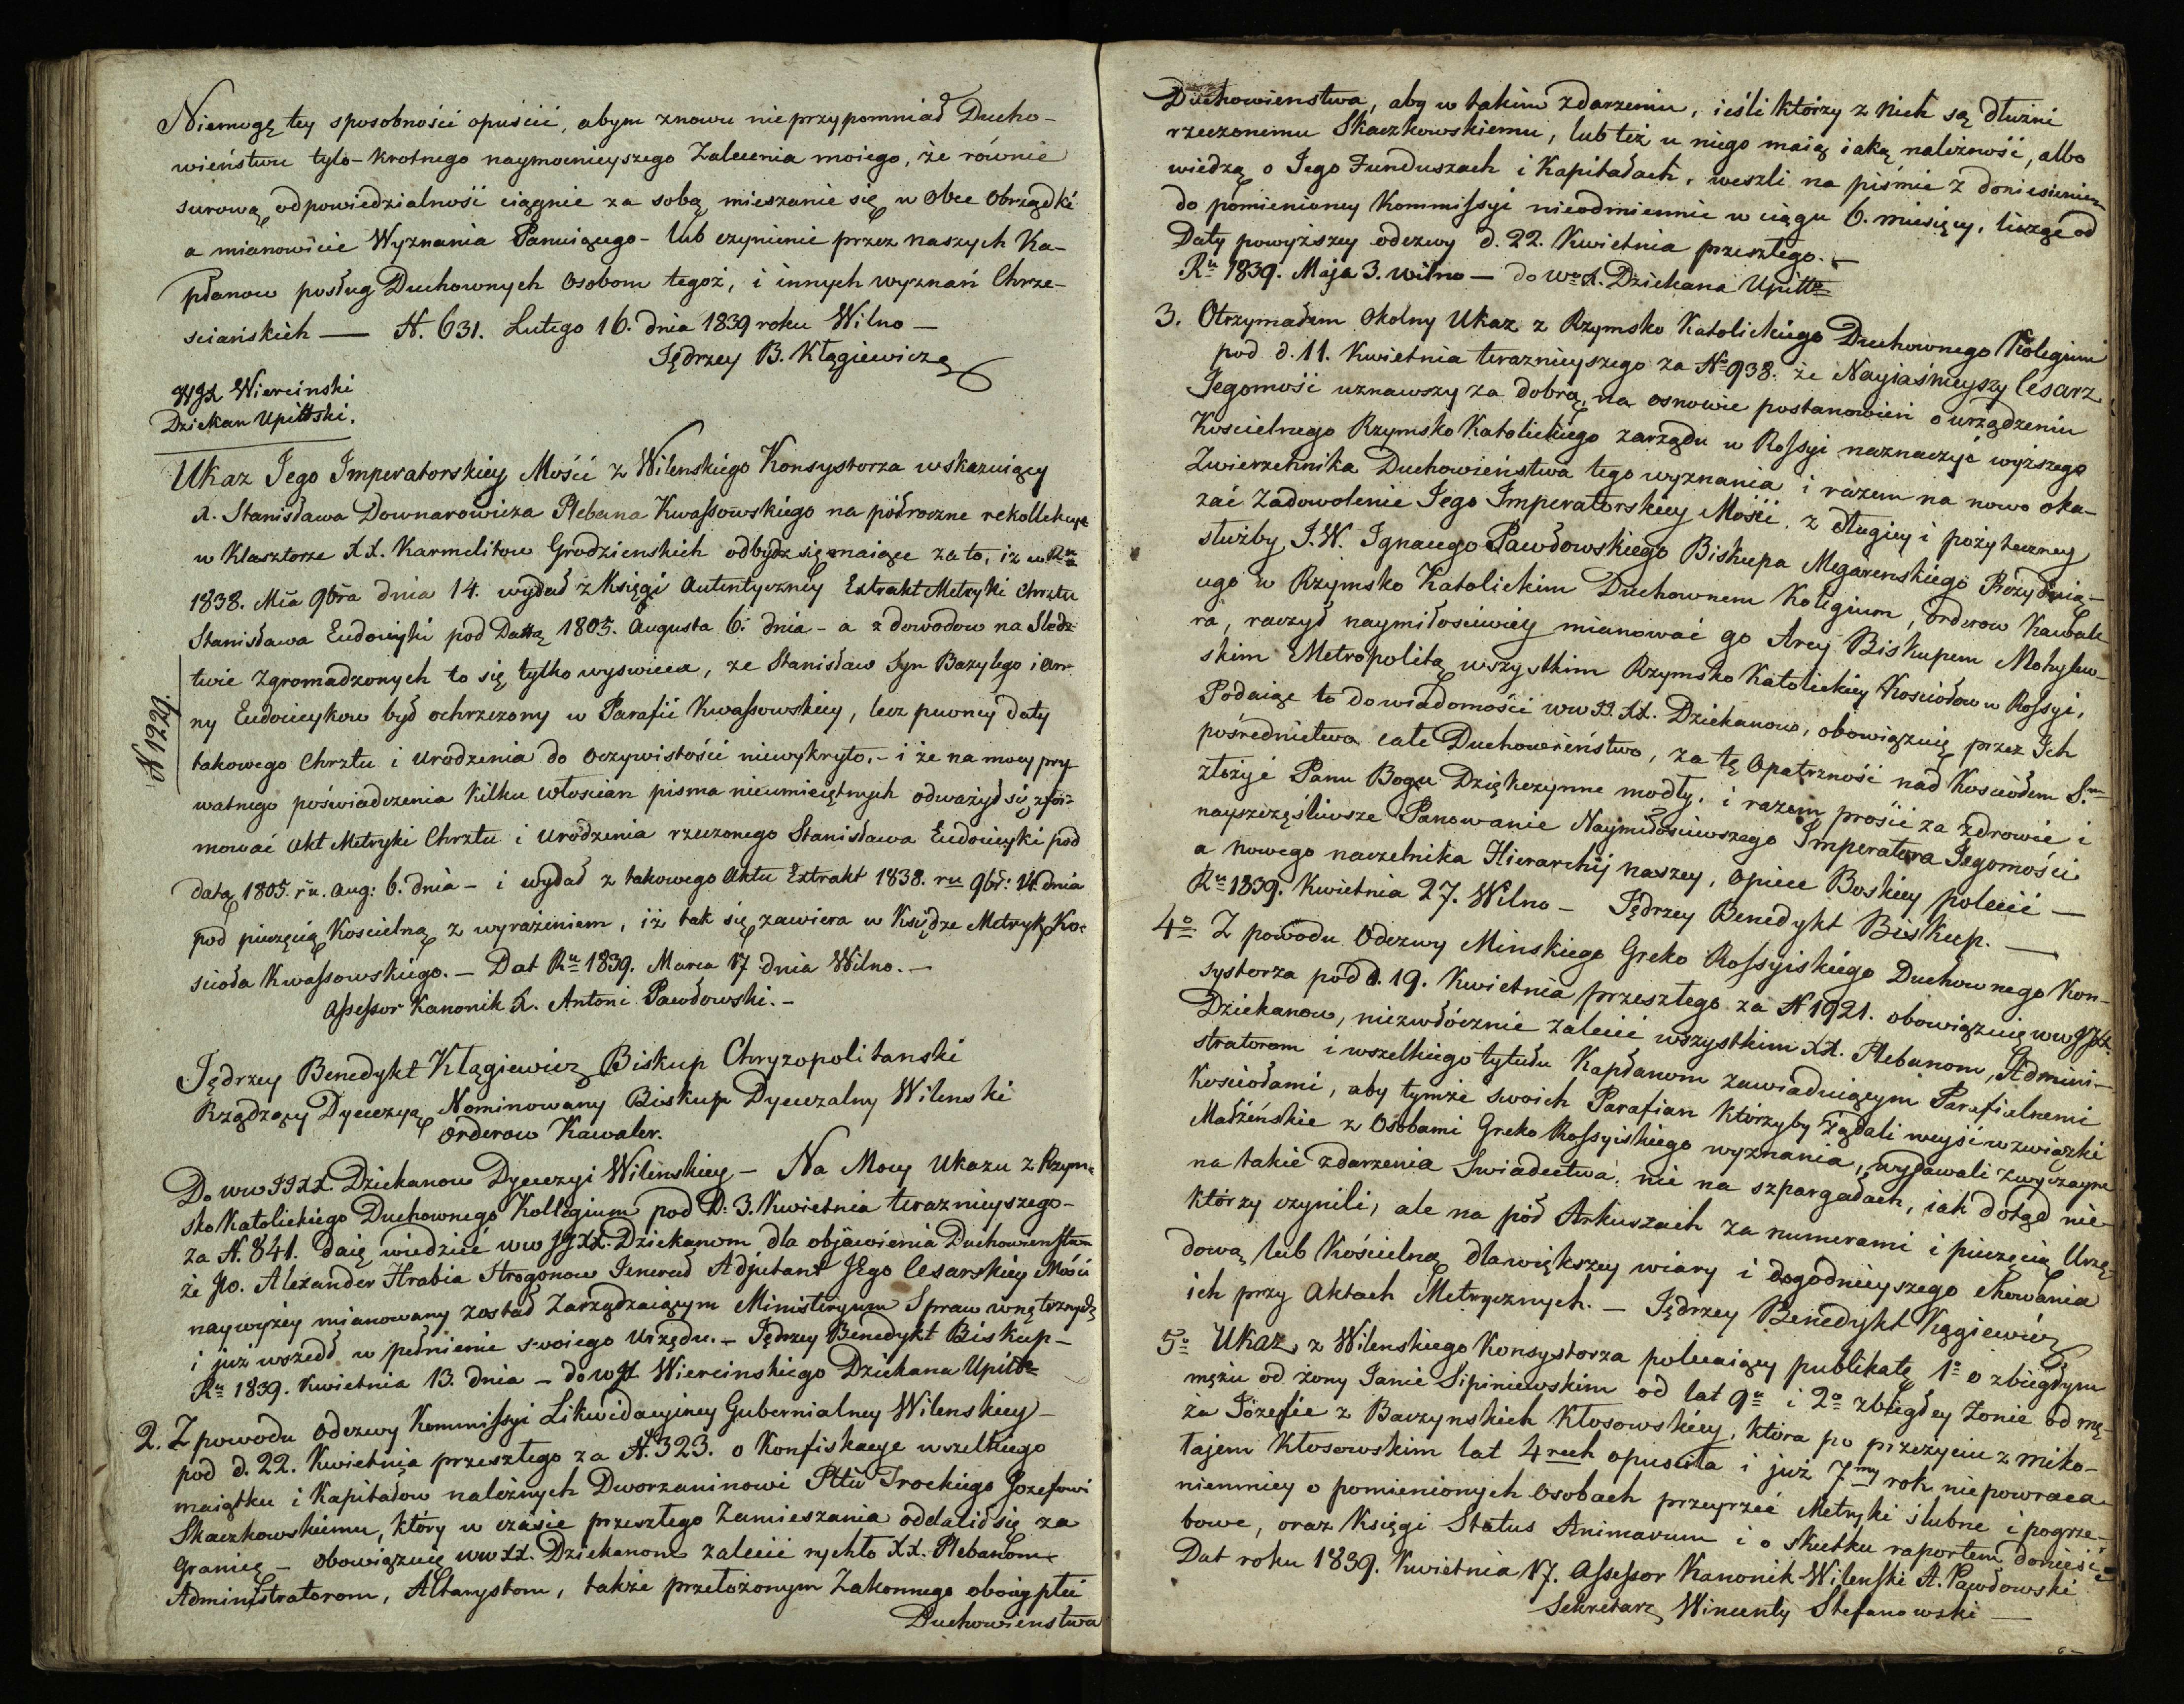 Niemogę tey sposobności opuścić, abym znowu nieprzypomniał Ducho-
wieństwu tylo-krotnego naymocnieyszego Zalecenia moiego, że równie
surową odpowiedzialność ciągnie za sobą mieszanie się w Obce Obrządki
a mianowicie Wyznania Panuiącego - lub czynienie przez naszych Ka-
płanow posług Duchownych Osobom tegoż, i innych wyznań Chrze-
sciańskich — N. 631. Lutego 16. dnia 1839 roku Wilno —
Jędrzey B. Kłągiewicz
WJX Wiercinski
Dziekan Upittski.
Ukaz Jego Imperatorskiey Mości z Wilenskiego Konsystorza wskazuiący
X. Stanisława Downarowicza Plebana Kwassowskiego na półroczne rekollekcye
w Klasztorze XX. Karmelitow Grodzienskich odbydz się maiące za to, iż w Ru
1838. Mca 9bra dnia 14. wydał z Księgi Autentyczney Extrakt Metryki Chrztu
Stanisława Eudocieyki pod Datą 1805. Augusta 6. dnia - a z dowodow na Sledz-
twie Zgromadzonych to się tylko wyswieca, ze Stanisław Syn Bazylego i An-
ny Eudocieykow był ochrzczony w Parafii Kwassowskiey, lecz pewney daty
takowego Chrztu i urodzenia do Oczywistości niewykryto. - i że na mocy pry
watnego poświadczenia kilku włoscian pisma nieumieiętnych odważył się zfor-
mować Akt Metryki Chrztu i urodzenia rzeczonego Stanisława Eudocieyki pod
datą 1805. ru. Aug: 6. dnia - i wydał z takowego Aktu Extrakt 1838. ru 9br: 14 dnia
pod pieczęcią Koscielną z wyrażeniem, iż tak się zawiera w Księdze Metryk Ko-
scioła Kwassowskiego. - Dat Ru 1839. Marca 17 dnia Wilno. -
Assessor Kanonik X. Antoni Pawłowski. -
N 1229.
Jędrzey Benedykt Kłągiewicz Biskup Chryzopolitanski
Rządzący Dyecezyą Nominowany Biskup Dyecezalny Wilenski
Orderow Kawaler.
Do WW JJXX. Dziekanow Dyecezyi Wilenskiey - Na Mocy Ukazu z Rzym-
sko Katolickiego Duchownego Kollegium pod D: 3. Kwietnia terazniejszego -
za N. 841. daię wiedzieć WW JJXX. Dziekanom dla objawienia Duchowienstwu
że JW. Alexander Hrabia Strogonow Jenerał Adjutant JEgo Cesarskiey Mości
naywyżey mianowany został Zarządzaiącym Ministeryum Spraw wnętrznych
i już wszedł w pełnienie swoiego Urzędu. - Jędrzey Benedykt Biskup -
Ru 1839. Kwietnia 13. dnia - do WJX Wiercinskiego Dziekana Upitt
2. Z powodu Odezwy Kommissyi Likwidacyiney Gubernialney Wilenskiey -
pod d. 22. Kwietnia przeszłego za N. 323. o Konfiskacye wszelkiego
maiątku i Kapitałow należnych Dworzaninowi Pttu Trockiego Jozefowi
Skaczkowskiemu, który w czasie przeszłego Zamieszania oddalił się za
Granicę - obowiązuię WWXX. Dziekanow zalecić rychło XX. Plebanom
Administratorom, Altarystom, także przełożonym Zakonnego oboiey płci
Duchowienstwa
Duchowienstwa, aby w takim zdarzeniu, ieśli którzy z Nich są dłużni
rzeczonemu Skaczkowskiemu, lub też u niego maią iaką należność, albo
wiedzą o Jego Funduszach i Kapitałach, weszli na piśmie z doniesieniem
do pomienioney Kommissyi nieodmiennie w ciągu 6. miesięcy, licząc od
Daty powyższey odezwy d. 22. Kwietnia przeszłego. -
Ru 1839. Maja 3. Wilno - do Wo X. Dziekana Upitto
3. Otrzymałem Okolny Ukaz z Rzymsko Katolickiego Duchownego Kolegium
pod d. 11. Kwietnia teraznieyszego za No 938. że Nayiaśnieyszy Cesarz
Jegomość uznawszy za dobrą, na osnowie postanowień o urządzeniu
Koscielnego Rzymsko Katolickiego zarządu w Rossyi naznaczyć wyższego
Zwierzchnika Duchowieństwa tego wyznania i razem na nowo oka-
zać Zadowolenie Jego Imperatorskiey Mości z długiey i pożyteczney
służby J.W. Ignacego Pawłowskiego Biskupa Megarenskiego Prezyduią-
cego w Rzymsko Katolickim Duchownem Kolegium, Orderow Kawale-
ra, raczył naymiłościwiey mianować go Arcy Biskupem Mohylew-
skim Metropolitą wszystkim Rzymsko Katolickiey Kosciołow w Rossyi.
Podaiąc to do wiadomości WW JJ. XX. Dziekanow, obowiązuię przez Ich
pośrednictwo całe Duchowieństwo, za tę Opatrzność nad Kosciołem S.m
złożyć Panu Bogu Dziękczynne modły, i razem prosić za zdrowie i
nayszczęśliwsze Panowanie Naymiłościwszego Imperatora Jegomości
a Nowego naczelnika Hierarchij naszey, Opiece Boskiey polecić —
Ru 1839. Kwietnia 27. Wilno - Jędrzey Benedykt Biskup. —
4o Z powodu Odezwy Minskiego Greko Rossyiskiego Duchownego Kon-
systorza pod d. 19. Kwietnia przeszłego za N 1921. obowiązuię WW JJXX.
Dziekanow, niezwłócznie zalecić wszystkim XX. Plebanom, Admini-
stratorom i wszelkiego tytułu Kapłanom zawiaduiącym Parafialnemi
Kosciołami, aby tymże swoich Parafian którzyby żądali weyść w związki
Małżeńskie z Osobami Greko Rossyiskiego wyznania, wydawali zwyczayne
na takie zdarzenia Swiadectwa, nie na szpargałach, iak dotąd nie-
którzy czynili, ale na pół Arkuszach za numerami i pieczęcią Urzę-
dową lub Kościelną dla większey wiary i dogodnieyszego chowania
ich przy Aktach Metrycznych. - Jędrzey Benedykt Kągiewicz
5o Ukaz z Wilenskiego Konsystorza polecaiący publikatę 1o o zbiegłym
mężu od żony Janie Sipiniewskim od lat 9u i 2o zbiegłey Żonie od mę-
ża Józefie z Barzynskich Kłosowskiey, która po przeżyciu z Miko-
łajem Kłosowskim lat 4rech opuściła i już 7my rok niepowraca
niemniey o pomienionych Osobach przeyrzeć Metryki ślubne i pogrze-
bowe, oraz Księgi Status Animarum i o skutku raportem donieść
Dat roku 1839. Kwietnia 17. Assessor Kanonik Wilenski A. Pawłowski
Sekretarz Wincenty Stefanowski —